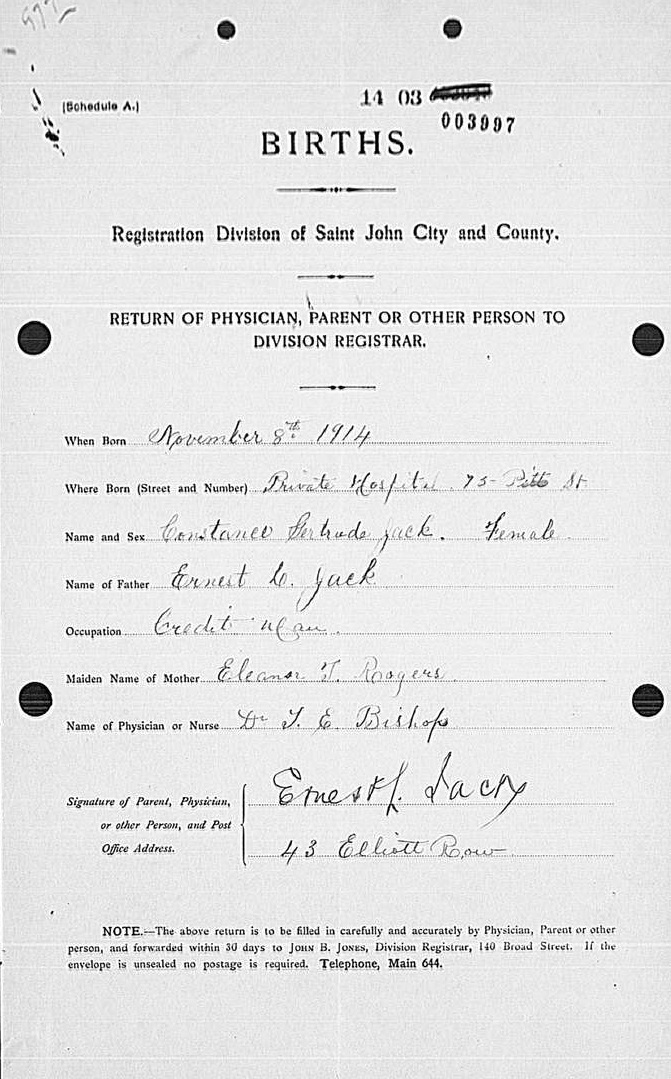 (Schedule A.)
14 03
003997
BIRTHS.
Registration Division of Saint John City and County.
RETURN OF PHYSICIAN, PARENT OR OTHER PERSON TO
DIVISION REGISTRAR.
When Born November 8th 1914
Where Born (Street and Number) Private Hospital 75 Pitt St
Name and Sex Constance Gertrude Jack. Female
Name of Father Ernest C. Jack
Occupation Credit Man.
Maiden Name of Mother Eleanor T. Rogers
Name of Physician or Nurse Dr T. E. Bishop
Signature of Parent, Physician, Ernest Jack
or other Person, and Post
Office Address. 43 Elliott Row
NOTE.—The above return is to be filled in carefully and accurately by Physician, Parent or other
person, and forwarded within 30 days to JOHN B. JONES, Division Registrar, 140 Broad Street. If the
envelope is unsealed no postage is required. Telephone, Main 644.